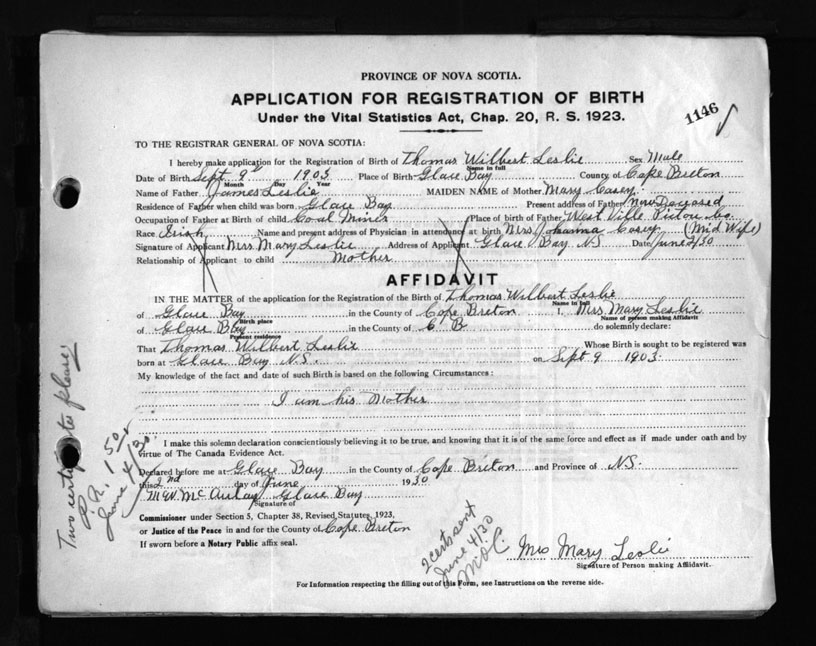 PROVINCE OF NOVA SCOTIA.
APPLICATION FOR REGISTRATION OF BIRTH
Under the Vital Statistics Act, Chap. 20, R. S. 1923.
1146
TO THE REGISTRAR GENERAL OF NOVA SCOTIA:
I hereby make application for the Registration of Birth of Thomas Wilbert Leslie Sex Male
Name in full
Date of Birth Sept 9th 1903 Place of Birth Glace Bay County of Cape Breton
Month Day Year
Name of Father James Leslie MAIDEN NAME of Mother Mary Casey.
Residence of Father when child was born Glace Bay Present address of Father Now Deceased
Occupation of Father at Birth of child Coal Miner Place of Birth of Father West Ville Pictou Co.
Race Irish Name and present address of Physician in attendance at birth Mrs Johanna Casey (Mid Wife)
Signature of Applicant Mrs Mary Leslie Address of Applicant Glace Bay NS Date June 2/30
Relationship of Applicant to child Mother
AFFIDAVIT
IN THE MATTER of the application for the Registration of the Birth of Thomas Wilbert Leslie
Name in full
of Glace Bay in the County of Cape Breton I, Mrs Mary Leslie
Birth place Name of person making Affidavit
of Glace Bay in the County of C B do solemnly declare:
Present residence
That Thomas Wilbert Leslie Whose Birth is sought to be registered was
born at Glace Bay N.S. on Sept 9 1903.
My knowledge of the fact and date of such Birth is based on the following Circumstances:
I am his Mother
I make this solemn declaration conscientiously believing it to be true, and knowing that it is of the same force and effect as if made under oath and by
virtue of The Canada Evidence Act.
Declared before me at Glace Bay in the County of Cape Breton and Province of N.S.
this 2nd day of June 1930
McAulay Glace Bay
Signature of
Commissioner under Section 5, Chapter 38, Revised Statutes, 1923,
or Justice of the Peace in and for the County of Cape Breton
If sworn before a Notary Public affix seal.
Mrs Mary Leslie
Signature of Person making Affidavit.
For Information respecting the filling out of this Form, see Instructions on the reverse side.
Two certificates please
1.50
June 4/30
2 certs sent
June 4/30